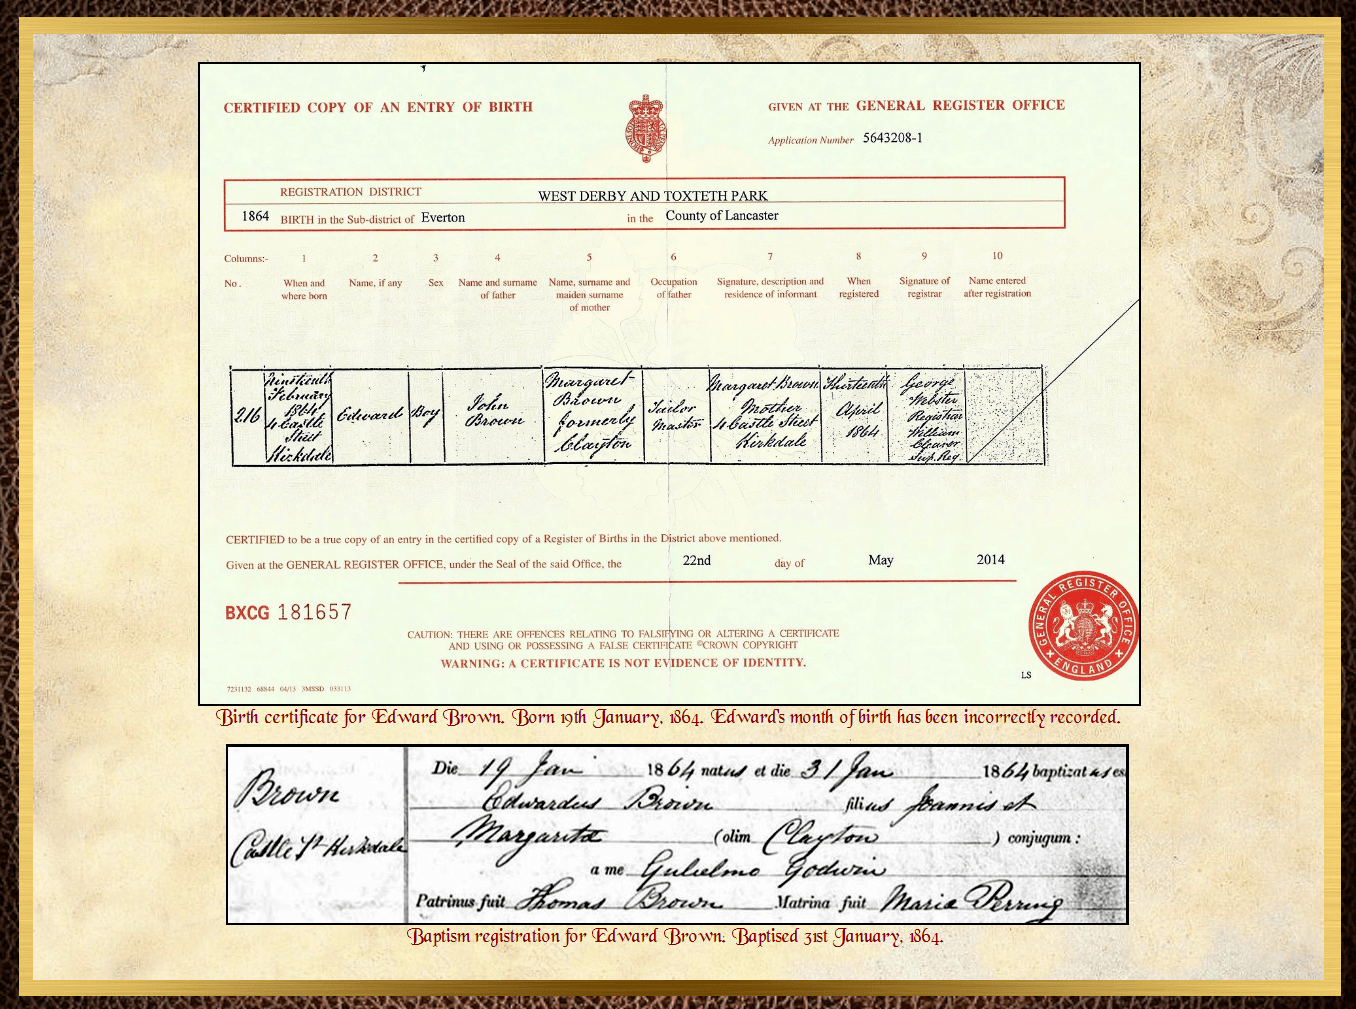 CERTIFIED COPY OF AN ENTRY OF BIRTH
GIVEN AT THE GENERAL REGISTER OFFICE
Application Number 5643208-1
REGISTRATION DISTRICT WEST DERBY AND TOXTETH PARK
1864 BIRTH in the Sub-district of Everton in the County of Lancaster
Columns:- 1 2 3 4 5 6 7 8 9 10
No. When and where born Name, if any Sex Name and surname of father Name, surname and maiden surname of mother Occupation of father Signature, description and residence of informant When registered Signature of registrar Name entered after registration
216
Nineteenth
February
1864
4 Castle
Street
Kirkdale
Edward
Boy
John
Brown
Margaret
Brown
formerly
Clayton
Tailor
Master
Margaret Brown
Mother
4 Castle Street
Kirkdale
Thirteenth
April
1864
George
Webster
Registrar
William
Cleaver
Sup. Reg.
CERTIFIED to be a true copy of an entry in the certified copy of a Register of Births in the District above mentioned.
Given at the GENERAL REGISTER OFFICE, under the Seal of the said Office, the 22nd day of May 2014
BXCG 181657
CAUTION: THERE ARE OFFENCES RELATING TO FALSIFYING OR ALTERING A CERTIFICATE
AND USING OR POSSESSING A FALSE CERTIFICATE ©CROWN COPYRIGHT
WARNING: A CERTIFICATE IS NOT EVIDENCE OF IDENTITY.
GENERAL REGISTER OFFICE
ENGLAND
LS
7231132 68844 04/13 3MSSD 033113
Birth certificate for Edward Brown. Born 19th January, 1864. Edward's month of birth has been incorrectly recorded.
Brown
Castle St Kirkdale
Die 19 Jan 1864 natus et die 31 Jan 1864 baptizatus es
Edwardus Brown filius Joannis et
Margaritæ (olim Clayton) conjugum:
a me Gulielmo Godwin
Patrinus fuit Thomas Brown Matrina fuit Maria Perring
Baptism registration for Edward Brown. Baptised 31st January, 1864.